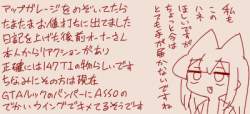 アップガレージをのぞいてたら
たまたまお値打ちに出てました
日記を上げた後前オーナーさん
本人からリアクションがあり
正確には147T1の物らしいです
ちなみにその方は現在
GTAルックのバンパーにASSOの
でかいウイングでキメてるそうです
私も
この
ハネ
ほしいですが
ちょっと今は
とても手が届かないですね